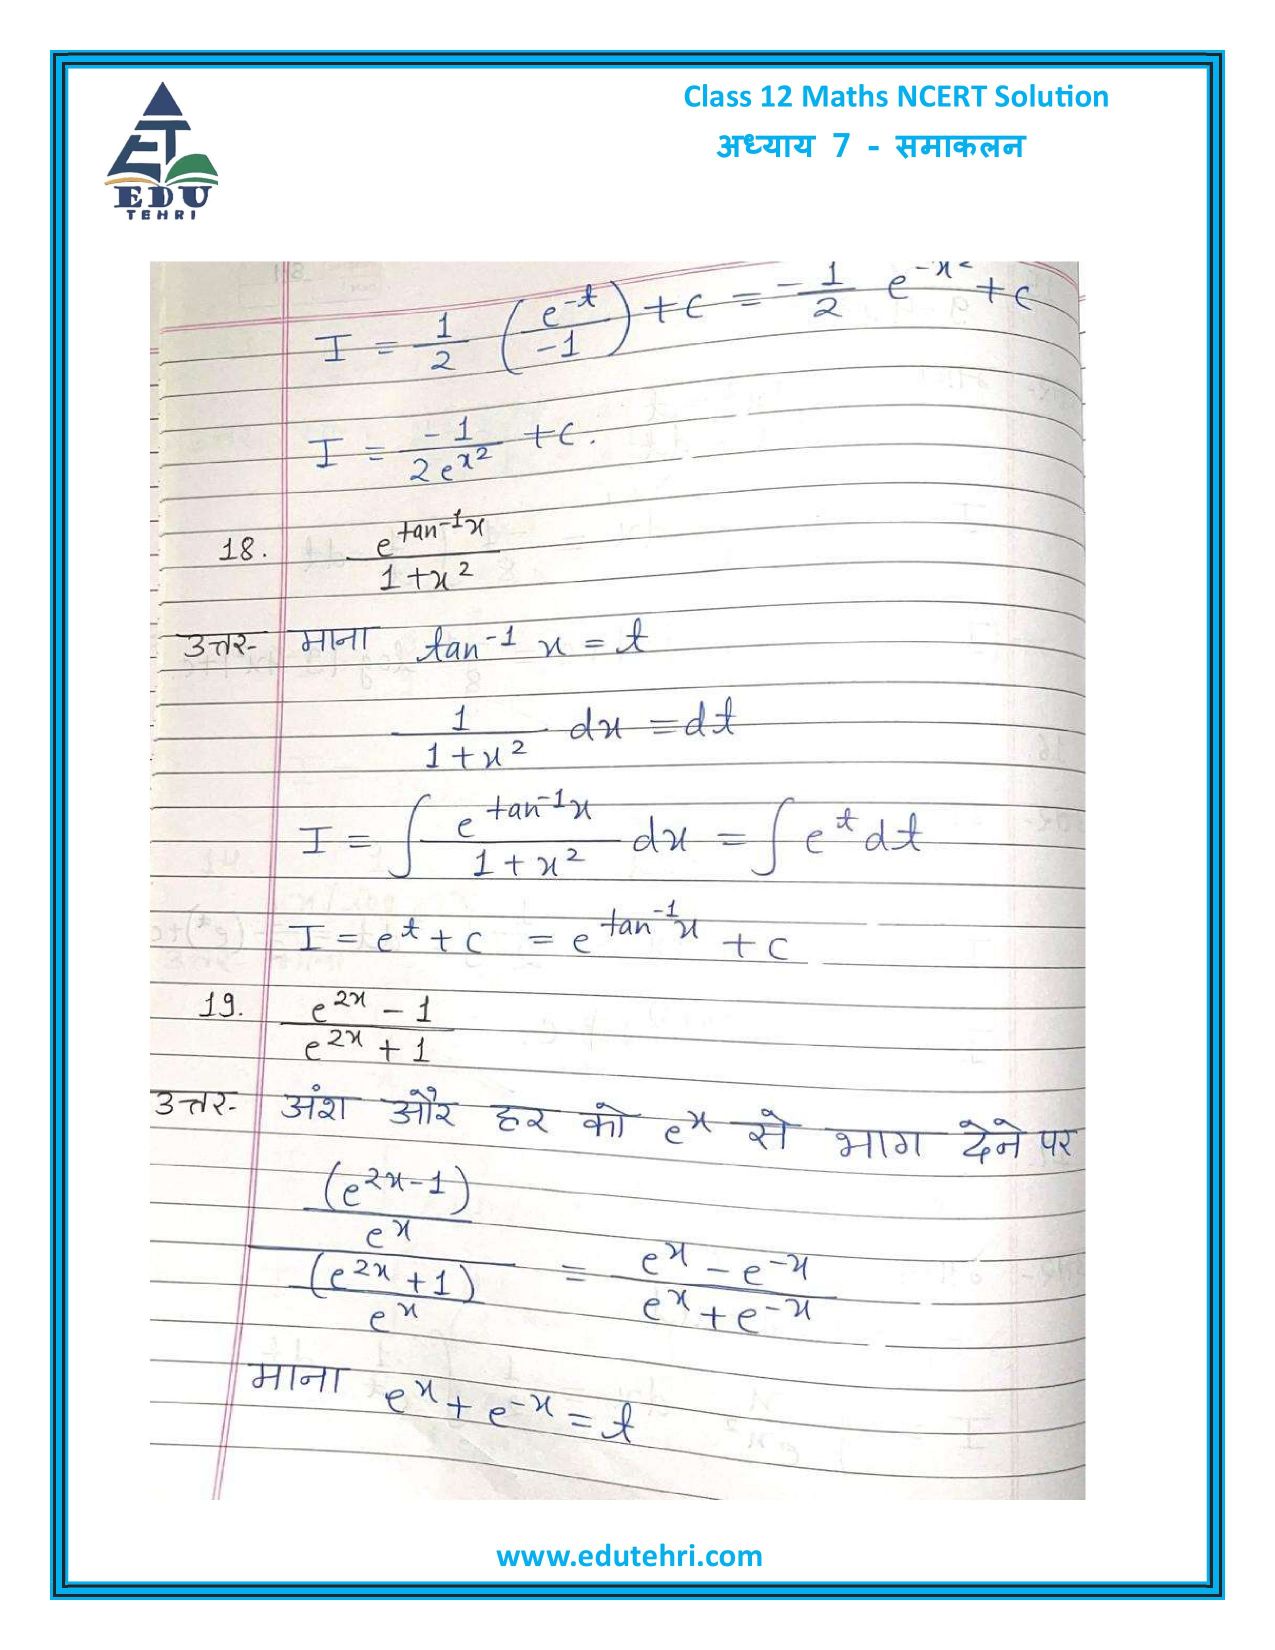 Class 12 Maths NCERT Solution
अध्याय 7 - समाकलन
EDU
TEHRI
I = 1/2 (e^-t / -1) + c = -1/2 e^-x² + c
I = -1 / 2e^x² + c.
18. e^tan⁻¹x / 1+x²
उत्तर- माना tan⁻¹ x = t
1 / 1+x² dx = dt
I = ∫ e^tan⁻¹x / 1+x² dx = ∫ e^t dt
I = e^t + c = e^tan⁻¹x + c
19. e^2x - 1 / e^2x + 1
उत्तर- अंश और हर को e^x से भाग देने पर
(e^2x-1) / e^x / (e^2x + 1) / e^x = e^x - e^-x / e^x + e^-x
माना e^x + e^-x = t
www.edutehri.com